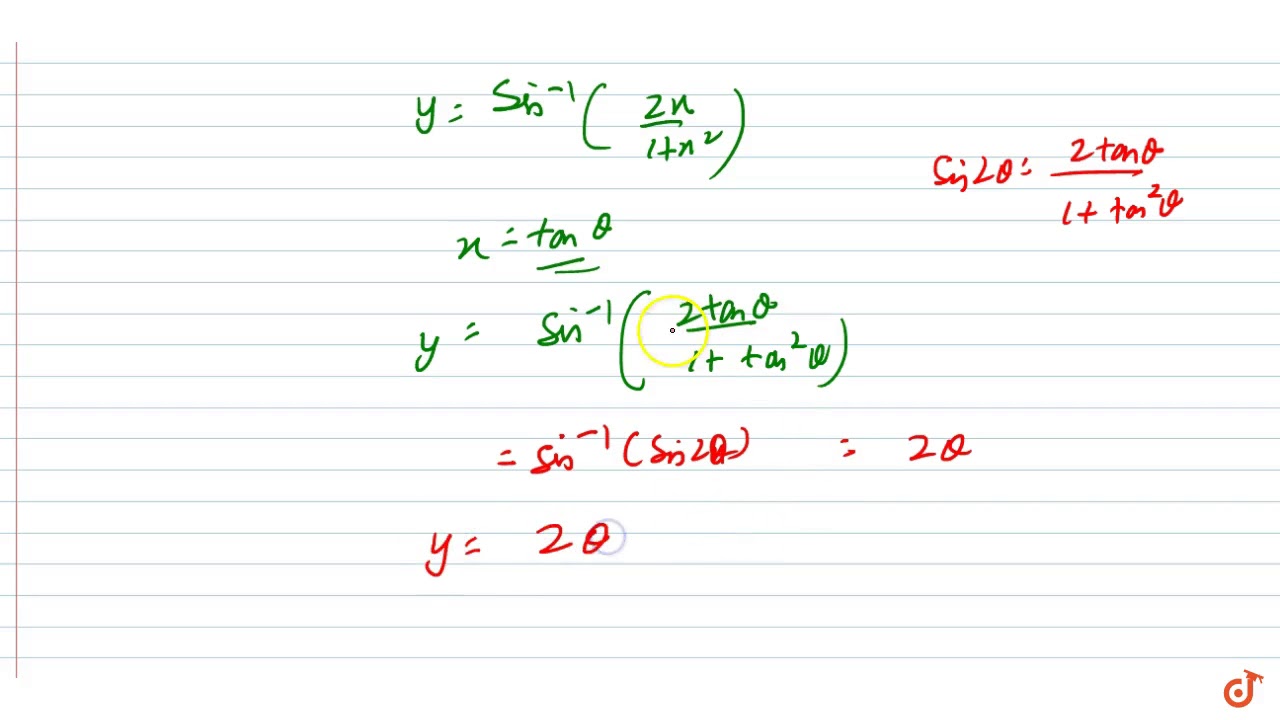 y = Sin⁻¹ ( 2x / 1+x² )
Sin2θ = 2tanθ / 1+tan²θ
x = tan θ
y = Sin⁻¹ ( 2tanθ / 1+tan²θ )
= Sin⁻¹ (Sin2θ) = 2θ
y = 2θ